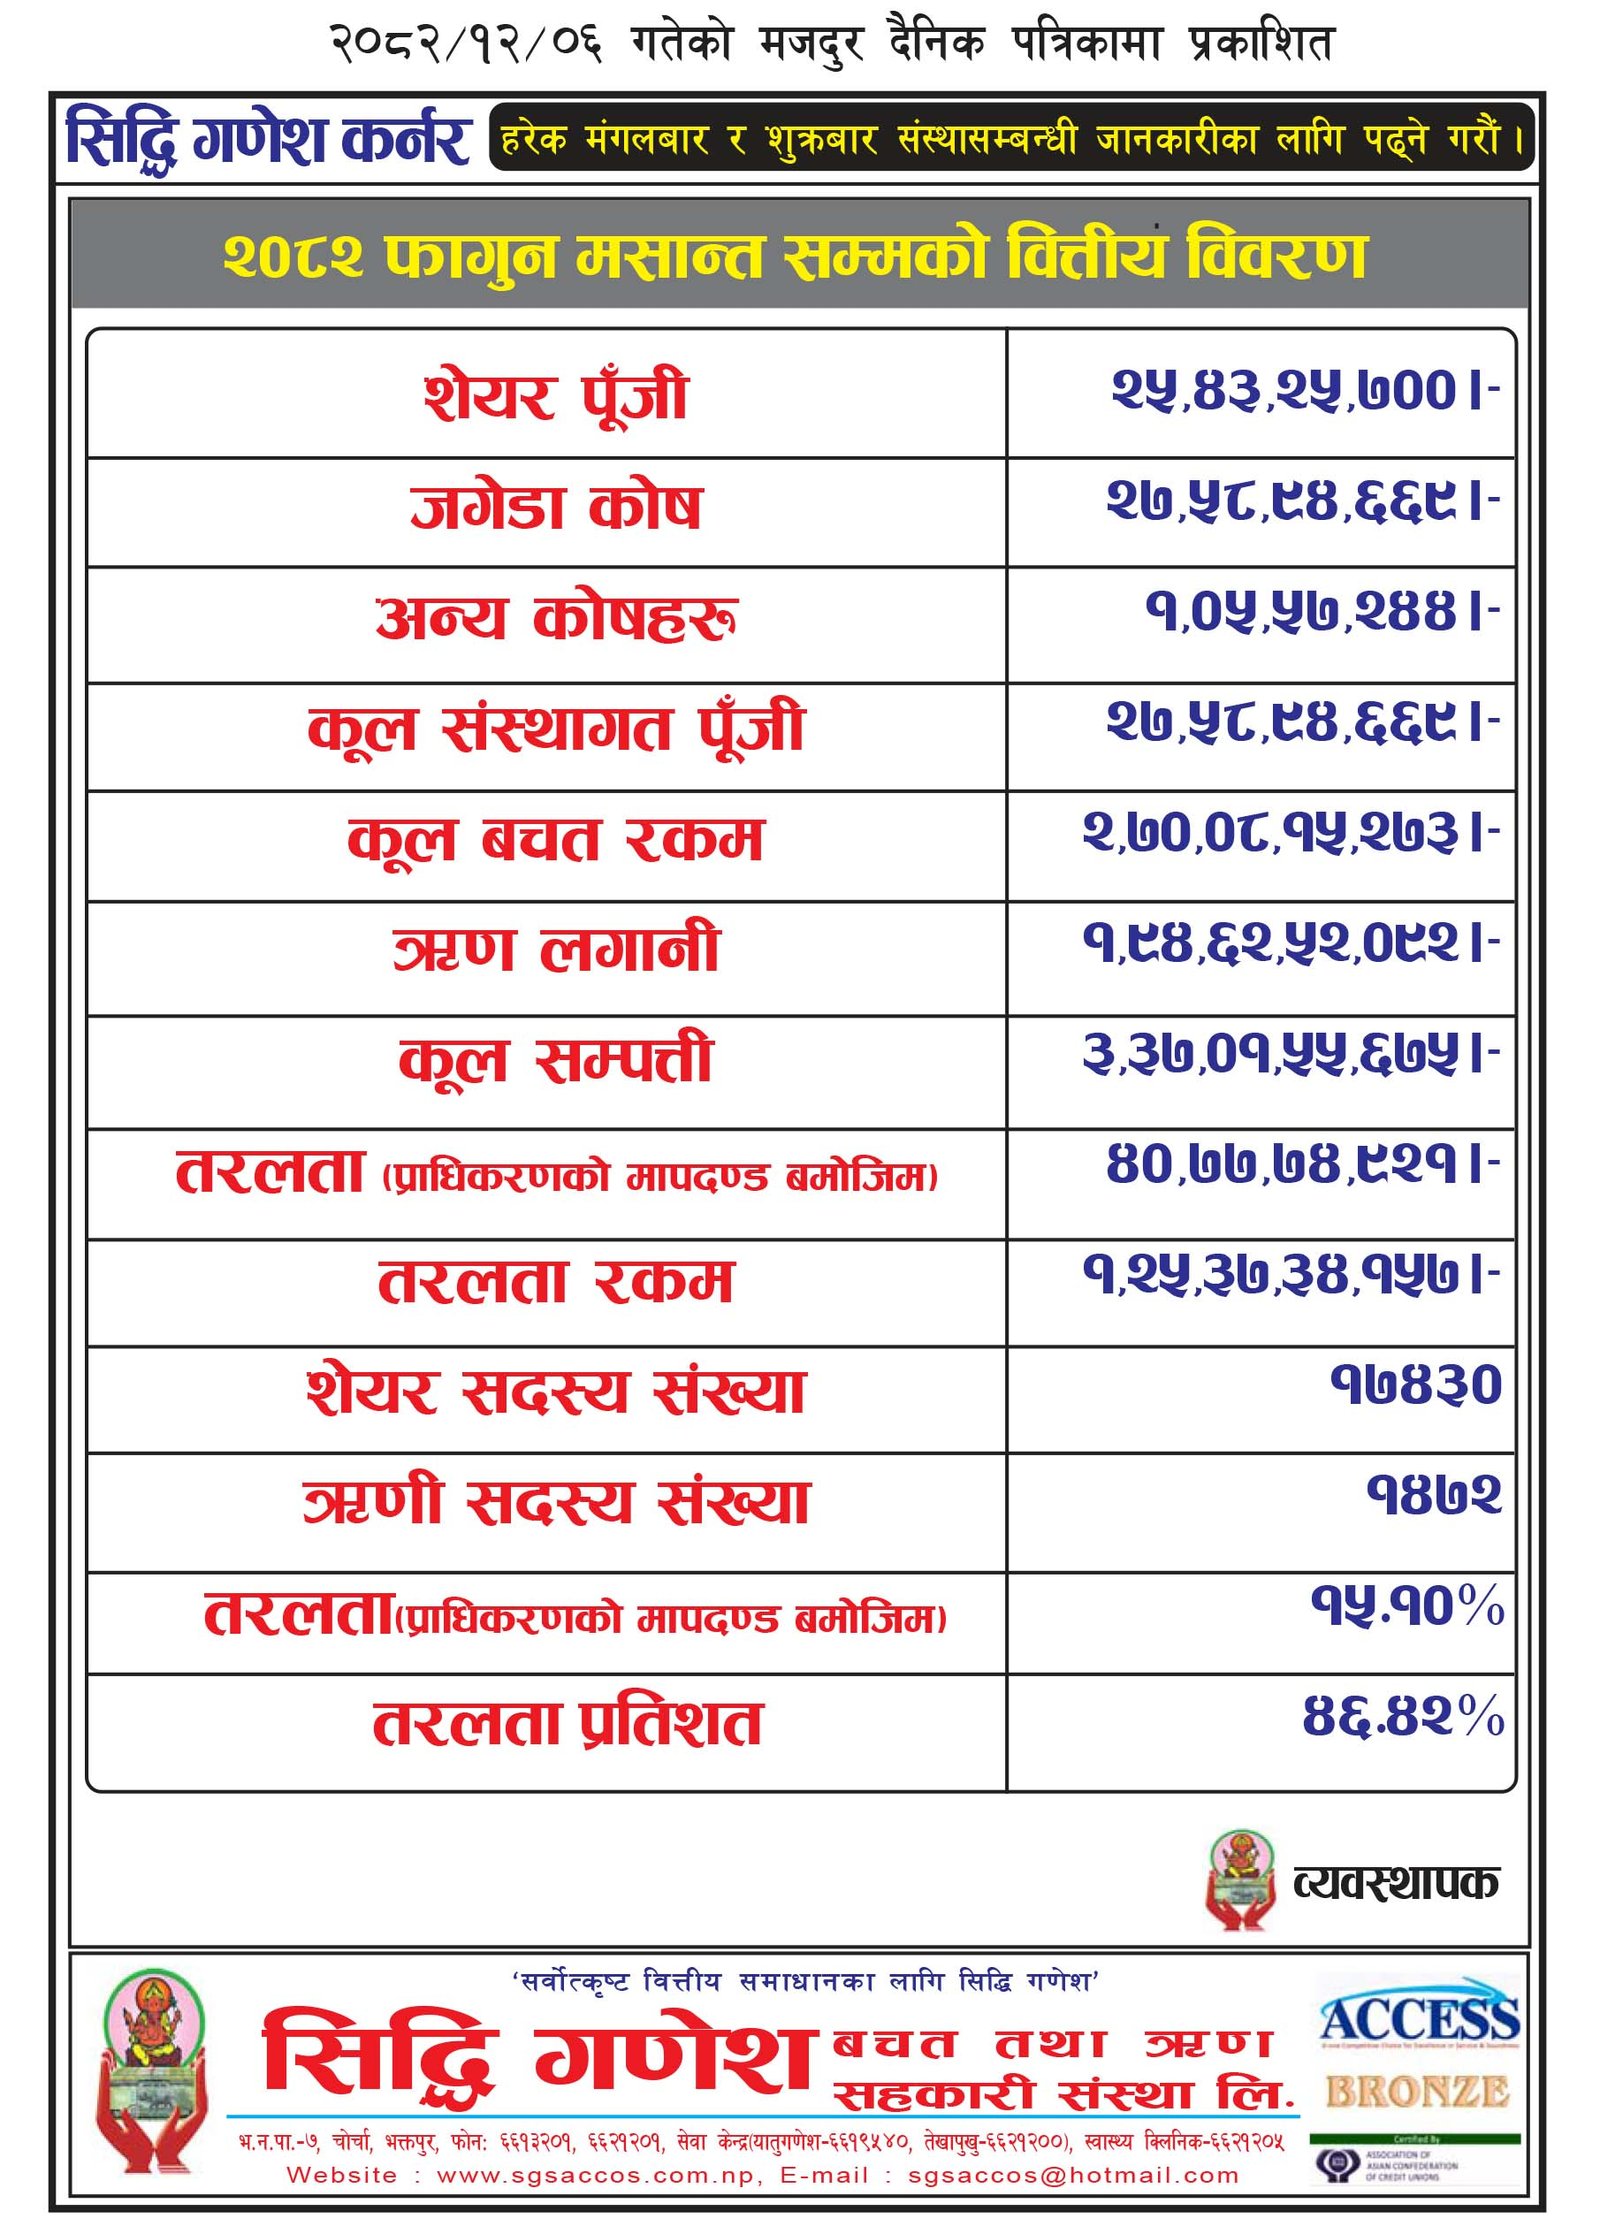 २०८२/१२/०६ गतेको मजदुर दैनिक पत्रिकामा प्रकाशित
सिद्धि गणेश कर्नर हरेक मंगलबार र शुक्रबार संस्थासम्बन्धी जानकारीका लागि पढ्ने गरौं ।
२०८२ फागुन मसान्त सम्मको वित्तीय विवरण
शेयर पूँजी २५,४३,२५,७००।-
जगेडा कोष २७,५८,९४,६६९।-
अन्य कोषहरु १,०५,५७,२४४।-
कूल संस्थागत पूँजी २७,५८,९४,६६९।-
कूल बचत रकम २,७०,०८,१५,२७३।-
ऋण लगानी १,९४,६२,५२,०९२।-
कूल सम्पत्ती ३,३७,०१,५५,६७५।-
तरलता (प्राधिकरणको मापदण्ड बमोजिम) ४०,७७,७४,९२१।-
तरलता रकम १,२५,३७,३४,१५७।-
शेयर सदस्य संख्या १७४३०
ऋणी सदस्य संख्या १४७२
तरलता(प्राधिकरणको मापदण्ड बमोजिम) १५.१०%
तरलता प्रतिशत ४६.४२%
व्यवस्थापक
‘सर्वोत्कृष्ट वित्तीय समाधानका लागि सिद्धि गणेश’
सिद्धि गणेश बचत तथा ऋण
सहकारी संस्था लि.
भ.न.पा.-७, चोर्चा, भक्तपुर, फोन: ६६१३२०१, ६६२१२०१, सेवा केन्द्र(यातुगणेश-६६१९५४०, तेखापुखु-६६२१२००), स्वास्थ्य क्लिनिक-६६२१२०५
Website : www.sgsaccos.com.np, E-mail : sgsaccos@hotmail.com
ACCESS
BRONZE
Certified By
ASSOCIATION OF
ASIAN CONFEDERATION
OF CREDIT UNIONS